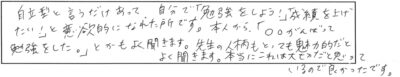 自立型と言うだけあって 自分で「勉強をしよう！」「成績を上げ
たい！」と意欲的になれた所です。本人から、「〇〇がんばって
勉強をした。」とかもよく聞きます。先生の人柄も とっても魅力的だと
よく聞きます。本当にこれは大切だと思って
いるので良かったです。